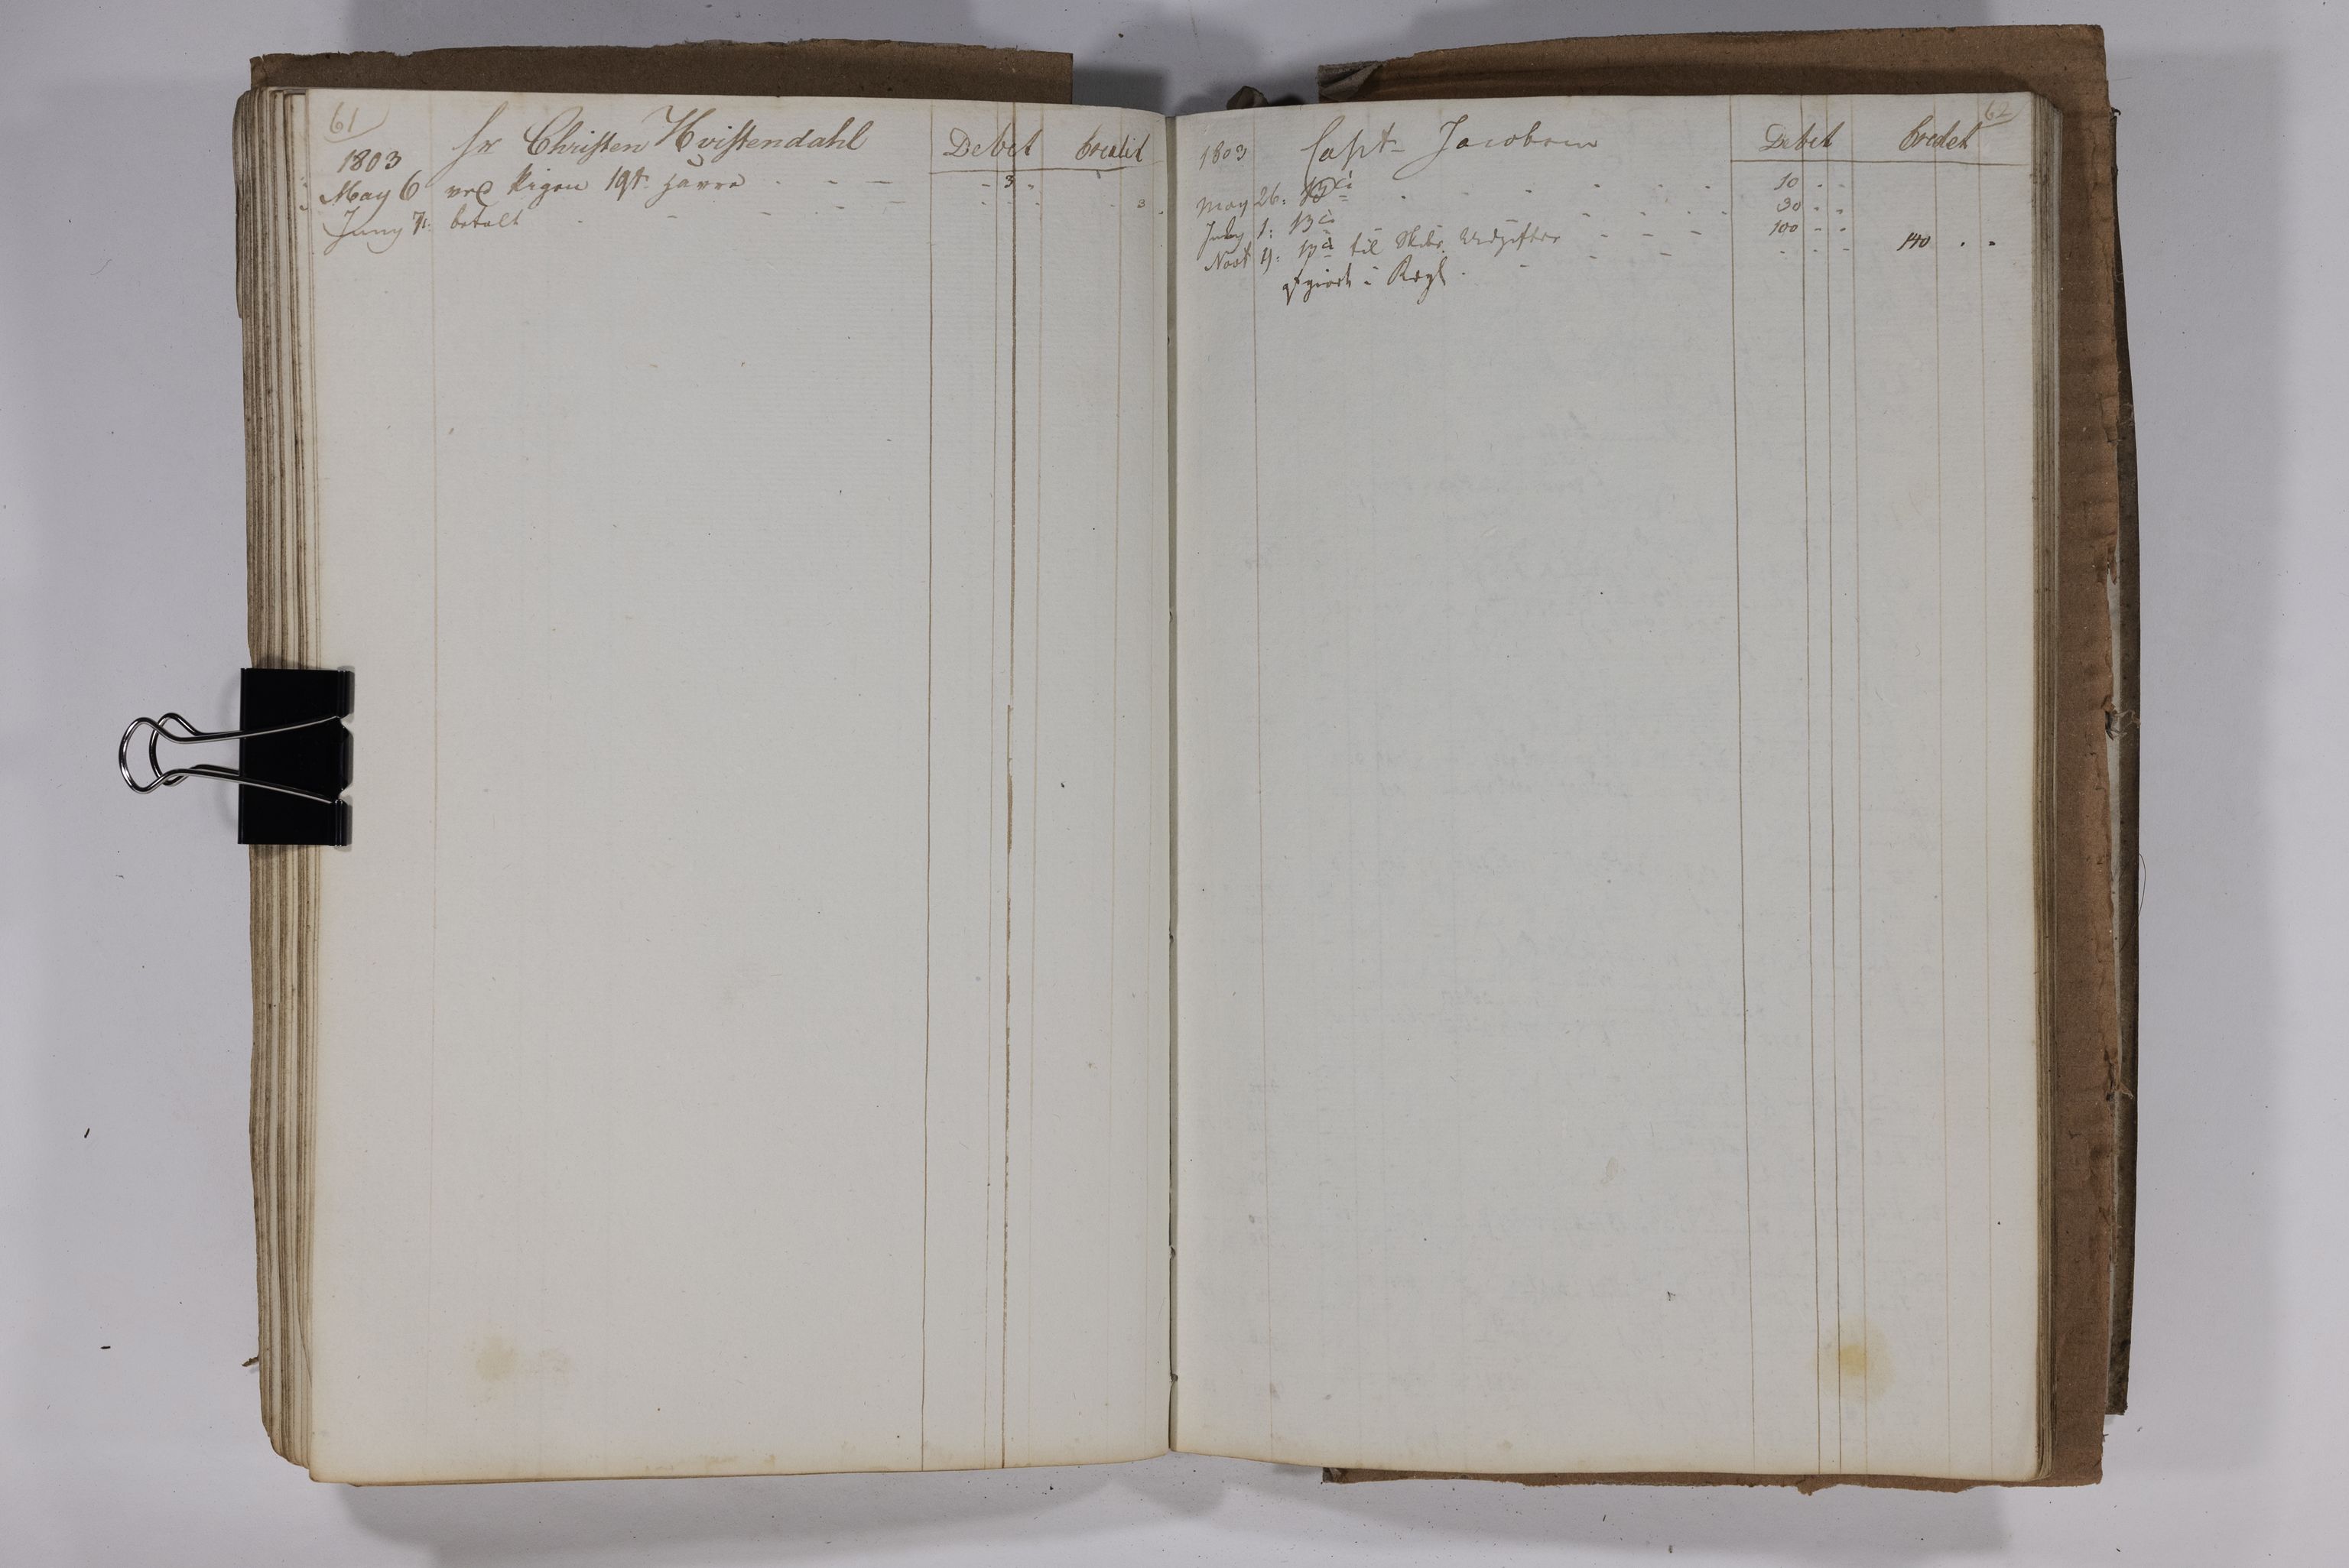 61
1803 Sr Christen Hvistendahl Debet Credit
May 6 ved Rigon 19 - - - - 3 -
Juny 7: betalt - - - - - - 3
62
1803 Capt Jacobsen Debet Credet
May 26: - - - - - - 10 - -
July 1: - - - - 30 - -
Novt 4: til Skibs Udgifter - - - 100 - -
afgiort i Regl - - - - - - 140 - -